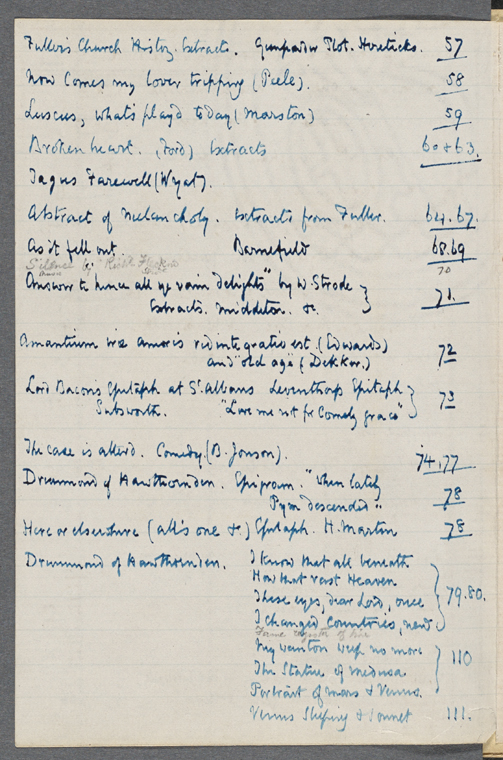 Fuller's Church History. Extracts. Gunpowder Plot. Hereticks. 57
Now comes my lover tripping (Peele). 58
Luscus, what's play'd today (Marston) 59
Broken heart. (Ford) Extracts 60 & 63.
Tagus Farewell (Wyat).
Abstract of Melancholy. Extracts from Fuller. 64.67.
As it fell out Barnefield 68.69
Silence by Richd Flecknoe 70
Answer to hence all ye vain delights" by W. Strode
Extracts. Middleton. &c. } 71.
Amantium irae amoris redintegratio est. (Edwards)
and "old age" (Dekker.) 72
Lord Bacon's Epitaph at St Albans Leventhorp Epitaph
Sabsworth. "Love me not for Comely grace" } 73
The case is alterd. Comedy. (B. Jonson). 74.77
Drummond of Hawthornden. Epigram. "When lately
Pym descended" 78
Here or elsewhere (all's one &c) Epitaph. H. Martin 78
Drummond of Hawthornden. I know that all beneath
How that vast Heaven
These eyes, dear Lord, once
I changed Countries, new } 79.80.
Fame
My wanton weep no more
The Statue of Medusa
Portrait of Mars & Venus. } 110
Venus Sleeping & Sonnet 111.